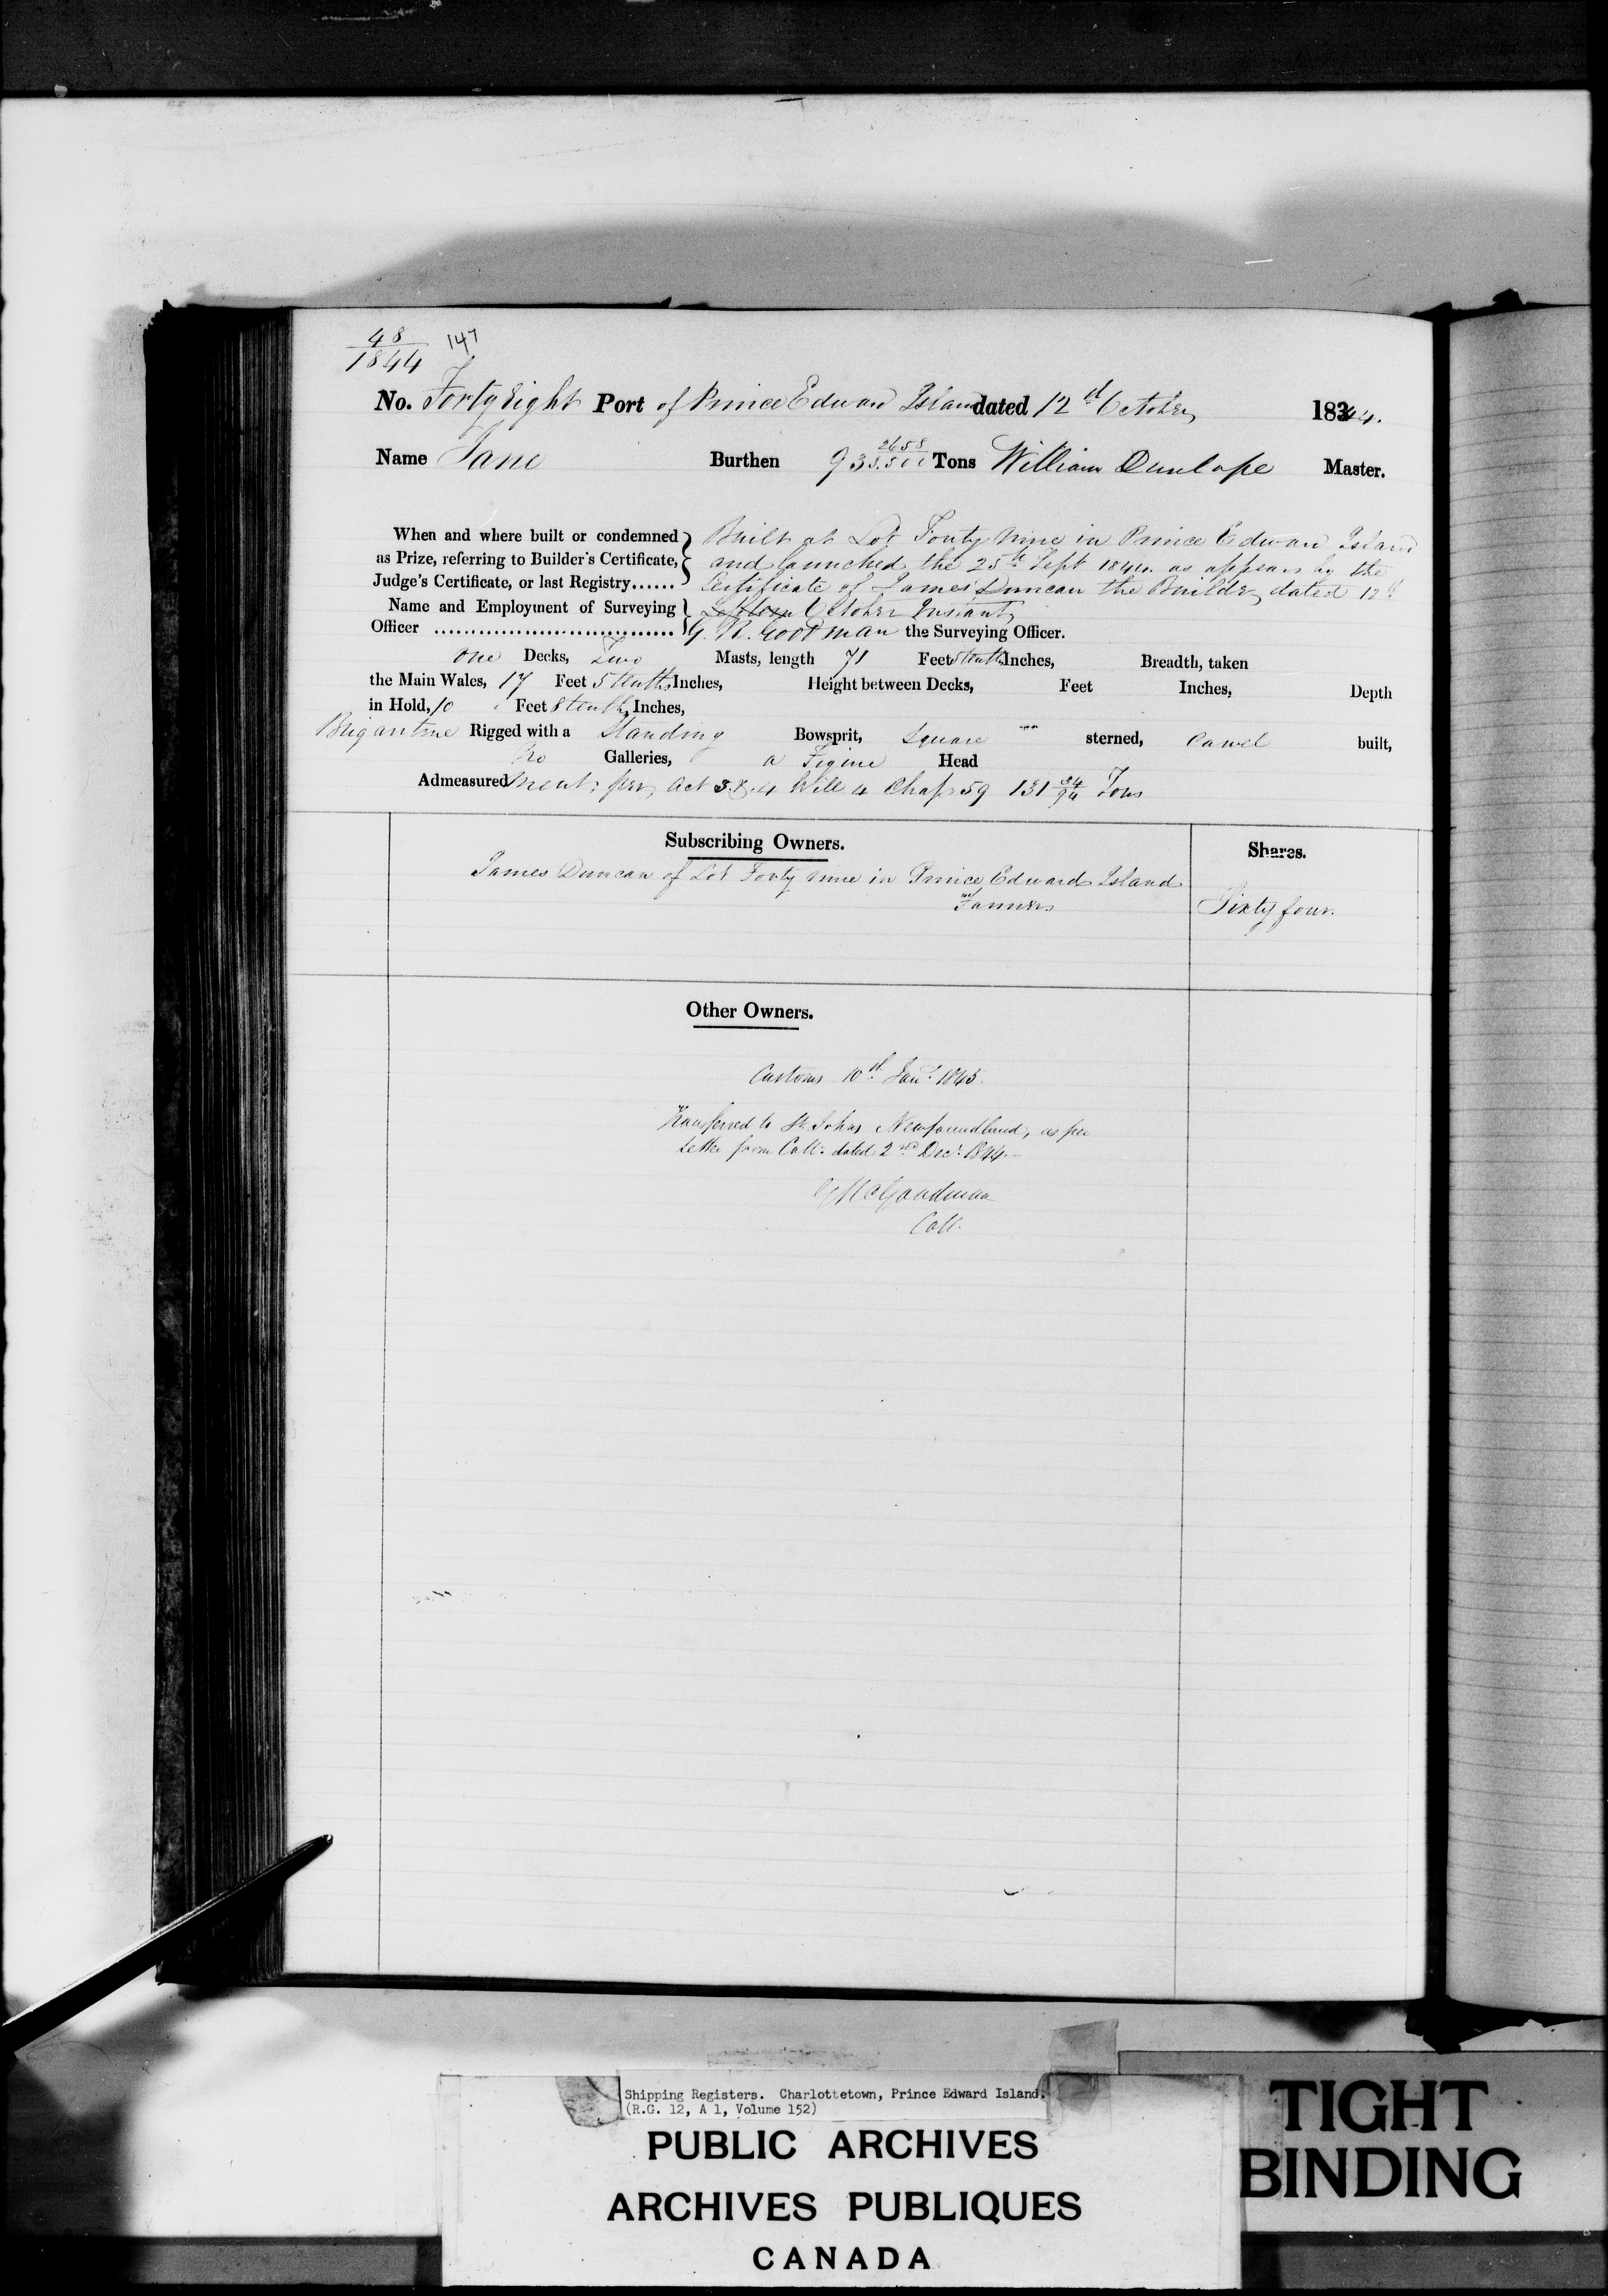 48 147
1844
No. Forty Eight Port of Prince Edward Island dated 12th October 1844.
Name Jane Burthen 93 2658/3500 Tons William Dunlope Master.
When and where built or condemned Built at Lot Forty Nine in Prince Edward Island
as Prize, referring to Builder's Certificate, and launched the 25th Sept 1844. as appears by the
Judge's Certificate, or last Registry...... Certificate of James Duncan the Builder, dated 12th
Name and Employment of Surveying October Instant
Officer ................................ G. R. Goodman the Surveying Officer.
One Decks, Two Masts, length 71 Feet 5 tenths Inches, Breadth, taken
the Main Wales, 17 Feet 5 tenths Inches, Height between Decks, Feet Inches, Depth
in Hold, 10 Feet 8 tenths Inches,
Brigantine Rigged with a Standing Bowsprit, Square sterned, Carvel built,
No Galleries, a Figure Head
Admeasurement; per, Act 3 & 4 Will 4 Chap 59 131 34/94 Tons
Subscribing Owners. Shares.
James Duncan of Lot Forty nine in Prince Edward Island
Sixty four.
Other Owners.
Customs 10th Jany. 1845.
Transferred to St. Johns Newfoundland, as per
Letter from Coll: dated 2nd Decr. 1844.
G R Goodman
Coll.
Shipping Registers. Charlottetown, Prince Edward Island.
(R.G. 12, A 1, Volume 152)
PUBLIC ARCHIVES
ARCHIVES PUBLIQUES
CANADA
TIGHT
BINDING